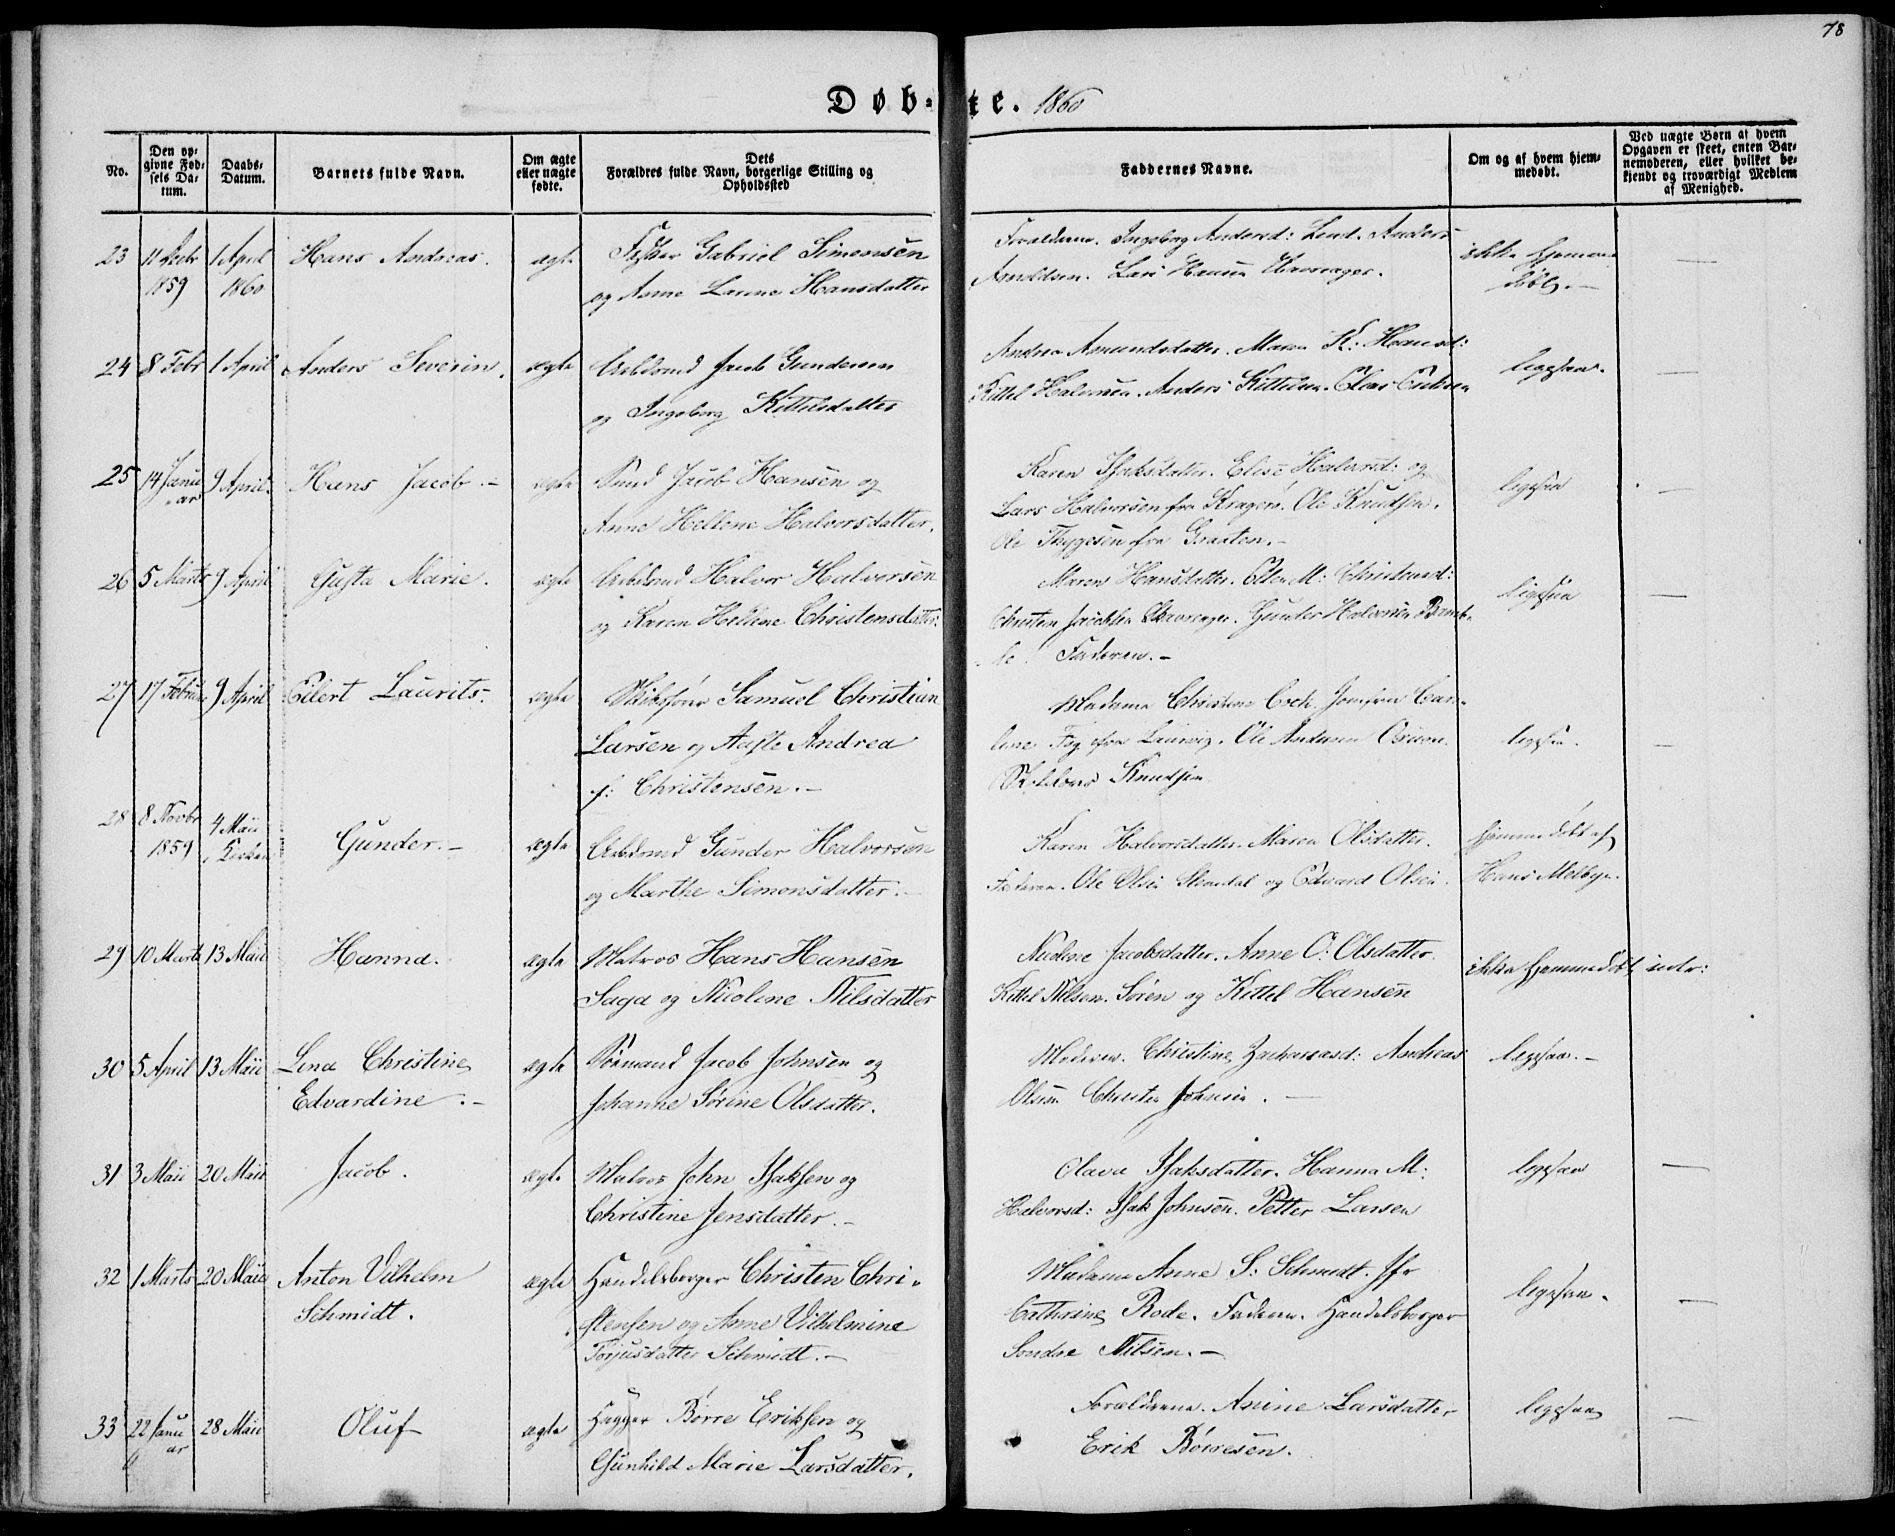 78
Døb-te. 1860
No.
Den opgivne Fødsels Datum.
Daabs-Datum.
Barnets fulde Navn.
Om ægte eller uægte fødte.
Forældres fulde Navn, Dets borgerlige Stilling og Opholdssted
Faddernes Navne.
Om og af hvem hjemmedøbt.
Ved uægte Børn af hvem Opgaven er skeet, enten Barnemoderen, eller hvilket bekjendt og troværdigt Medlem af Menighed.
23 11 1859 1 April 1860 Hans Andreas. ægte Fisker Gabriel Simonsen
og Anne Hansdatter
Forældrene. Ingeborg Andersd: Anders
Arnildsen. Lars
ikke hjemme
døbt. —
24 8 Febr 1 April Anders Severin. ægte Arbdsmd Jacob Gundersen
og Ingeborg Kittilsdatter
Andrea Amundsdatter. Maren K: Hansd:
Kittel Halvorsen. Anders Kittilsen.
ligesaa.
25 14 Januar 9 April. Hans Jacob. — ægte Jacob Hansen og
Anne Hellene Halvorsdatter.
Karen Isaksdatter. Elise Halvorsd: og
Lars Halvorsen fra Kragerø. Ole Knudsen.
Ole Thygesen fra
ligesaa
26 5 Marts 9 April Gusta Marie. ægte Arbdsmd Halvor Halvorsen
og Karen Helline Christensdatter:
Maren Hansdatter. Ellen M: Christensd:
Christen Jacobsen Gunder Halvorsen Bamb-
le. Faderen. —
ligesaa
27 17 Februar 9 April Eilert Laurits. ægte Skibsfører Samuel Christian
Larsen og Aaste Andrea
f: Christensen. —
Madame Christine Jomfru
fra Laurvig. Ole Andersen
Knudsen
ligesaa.
28 8 Novbr 1859 4 Maii i Kirken Gunder. — ægte Arbdsmd Gunder Halvorsen
og Marthe Simonsdatter. —
Karen Halvorsdatter. Maren Olsdatter.
Faderen. Ole Olsen og Edvard Olsen.
hjemmedøbt af
Hans Melbye.
29 10 Marts 13 Maii Hanna. ægte Matros Hans Hansen
Saga og Nicoline Nilsdatter
Nicoline Jacobsdatter. Anne O: Olsdatter.
Kittel Nilsen. Søren og Kittel Hansen
ikke hjemmedøbt
30 5 April 13 Maii Lina Christine
Edvardine. — ægte Sømand Jacob Johnsen og
Johanne Sørine Olsdatter.
Moderen. Christine Zachariasd: Andreas
Olsen Christen Johnsen. —
ligesaa. —
31 3 Maii 20 Maii Jacob. ægte Matros John Isaksen og
Christine Jensdatter. —
Olava Isaksdatter. Hanna M:
Halvorsd: Isak Johnsen. Petter Larsen
ligesaa
32 1 Marts 20 Maii Anton Vilhelm
Schmidt. ægte Handelsborger Christen Chri-
stensen og Anne Vilhelmine
Torjusdatter Schmidt. —
Madame Anne S: Schmidt. Jfr
Cathrine Rode. Faderen. Handelsborger
Sondre Nilsen. —
ligesaa.
33 22 Januar 28 Maii Oluf ægte Hugger Børre Eriksen og
Gunhild Marie Larsdatter.
Forældrene. Anine Larsdatter
Erik Børresen.
ligesaa